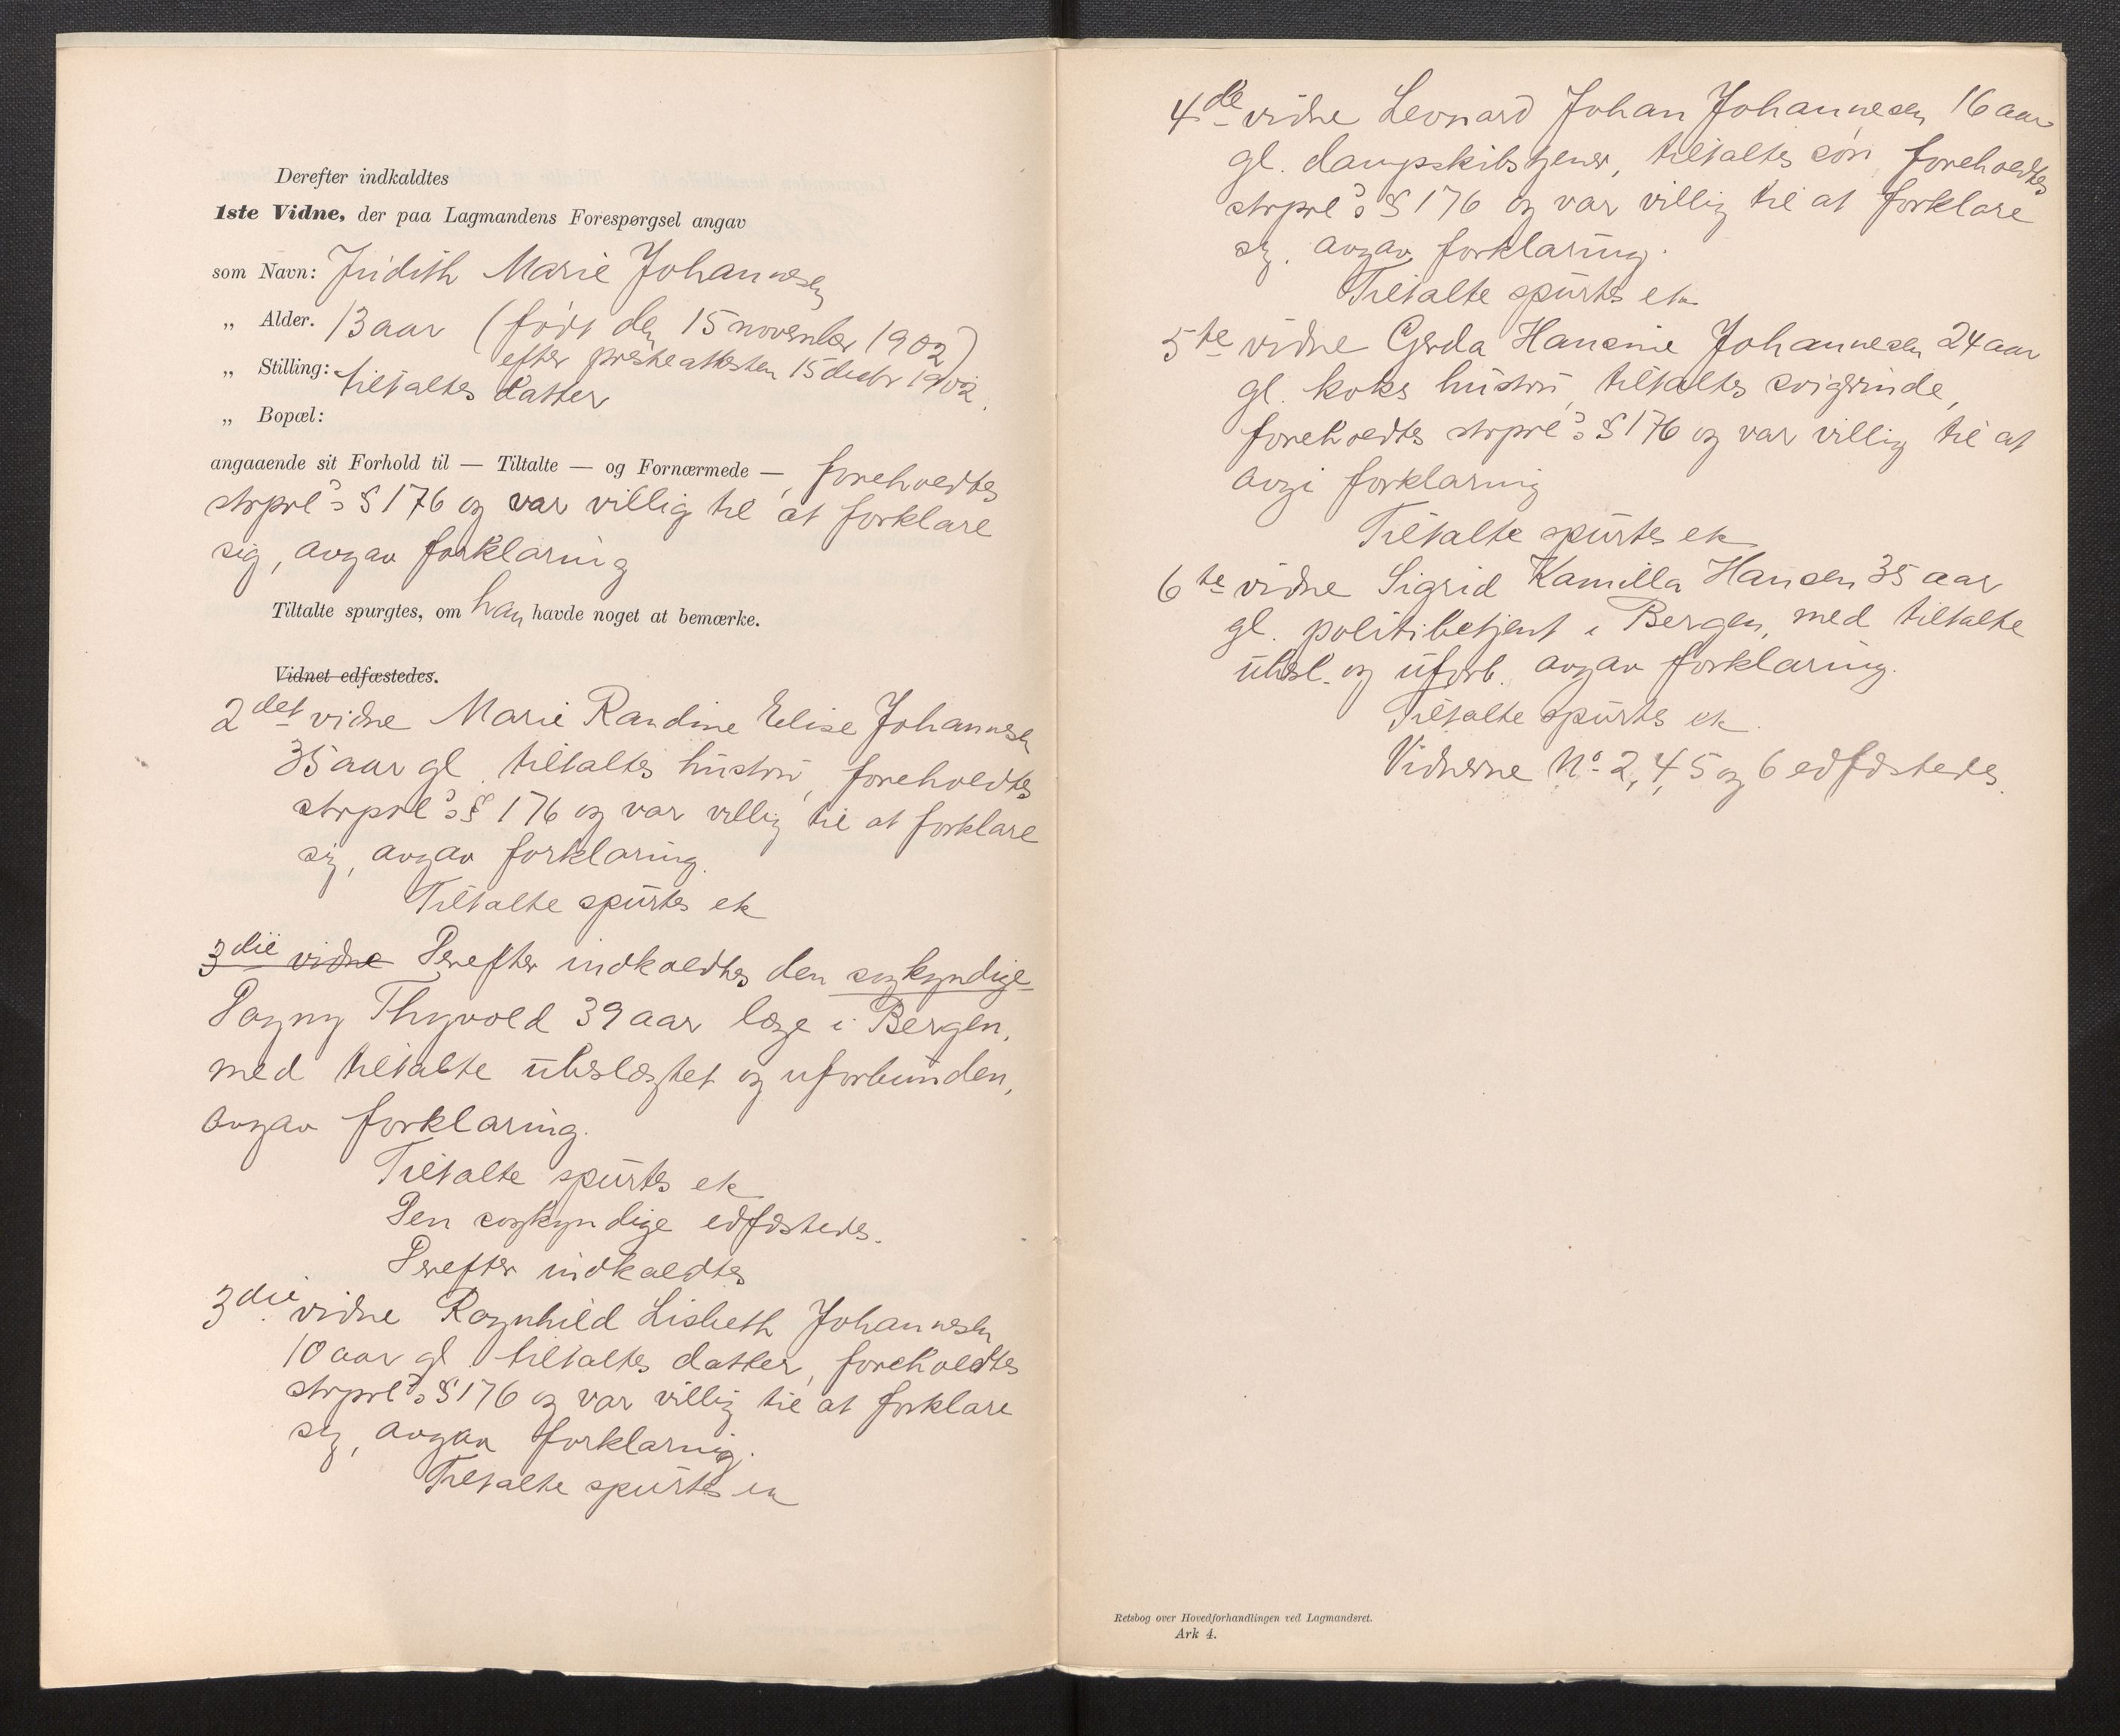 Derefter indkaldtes
1ste Vidne, der paa Lagmandens Forespørgsel angav
som Navn: Judith Marie Johannesen
„ Alder. 13 aar (født den 15 november 1902)
efter presteattesten 15 decbr 1902.
„ Stilling: tiltaltes datter
„ Bopæl:
angaaende sit Forhold til — Tiltalte — og Fornærmede —, foreholdtes
strprl's § 176 og var villig til at forklare
sig, avgav forklaring
Tiltalte spurgtes, om han havde noget at bemærke.
Vidnet edfæstedes.
2det vidne Marie Randine Elise Johannesen
35 aar gl. tiltaltes hustru, foreholdtes
strprl's § 176 og var villig til at forklare
sig, avgav forklaring.
Tiltalte spurtes etc
3die vidne Derefter indkaldtes den sagkyndige
Dagny Thyvold 39 aar læge i Bergen,
med tiltalte ubeslægtet og uforbunden,
avgav forklaring.
Tiltalte spurtes etc
Den sagkyndige edfæstedes.
Derefter indkaldtes
3die vidne Ragnhild Lisbeth Johannesen
10 aar gl. tiltaltes datter, foreholdtes
strprl's § 176 og var villig til at forklare
sig, avgav forklaring.
Tiltalte spurtes etc
4de vidne Leonard Johan Johannesen 16 aar
gl. dampskibstjener, tiltaltes søn, foreholdtes
strprl's § 176 og var villig til at forklare
sig, avgav forklaring.
Tiltalte spurtes etc
5te vidne Gerda Hansine Johannesen 24 aar
gl. koks hustru, tiltaltes svigerinde,
foreholdtes strprl's § 176 og var villig til at
avgi forklaring
Tiltalte spurtes etc
6te vidne Sigrid Kamilla Hansen 35 aar
gl. politibetjent i Bergen, med tiltalte
ubesl. og uforb. avgav forklaring.
Tiltalte spurtes etc.
Vidnerne No 2, 4, 5 og 6 edfæstedes.
Retsbog over Hovedforhandlingen ved Lagmandsret.
Ark 4.